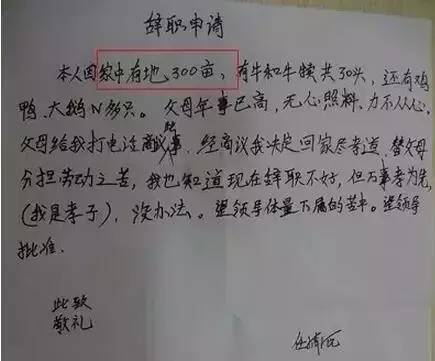 辞职申请
本人因家中有地300亩，有牛和牛犊共30头，还有鸡
鸭、大鹅N多只。父母年事已高，无心照料，力不从心，
父母给我打电话商议的事，经商议我决定回家尽孝道，替父母
分担劳动之苦，我也知道现在辞职不好，但万事孝为先，
(我是孝子)，没办法。望领导体量下属的苦中。望领导
批准.
此致
敬礼